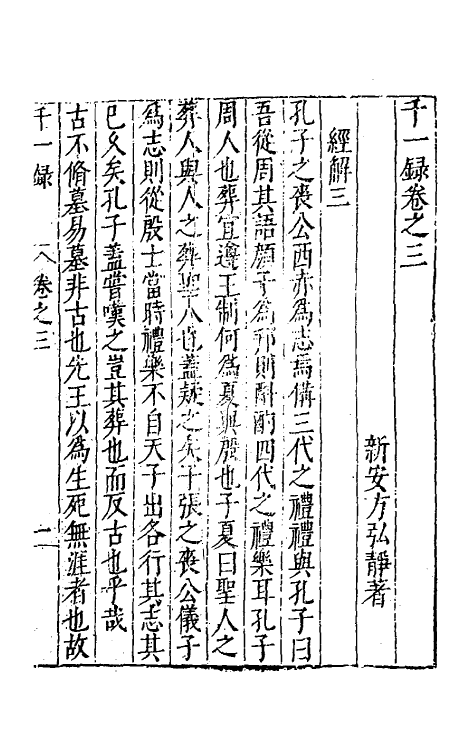 千一録卷之三
新安方弘靜著
經解三
孔子之喪公西赤為志焉備三代之禮禮與孔子曰
吾從周其語顔子為邦則斟酌四代之禮樂耳孔子
周人也葬宜遵王制何為夏與殷也子夏曰聖人之
葬人與人之葬聖人也蓋疑之矣子張之喪公儀子
為志則從殷士當時禮樂不自天子出各行其志其
已久矣孔子蓋嘗嘆之豈其葬也而反古也乎哉
古不脩墓易墓非古也先王以為生死無涯者也故
千一録 卷之三 一